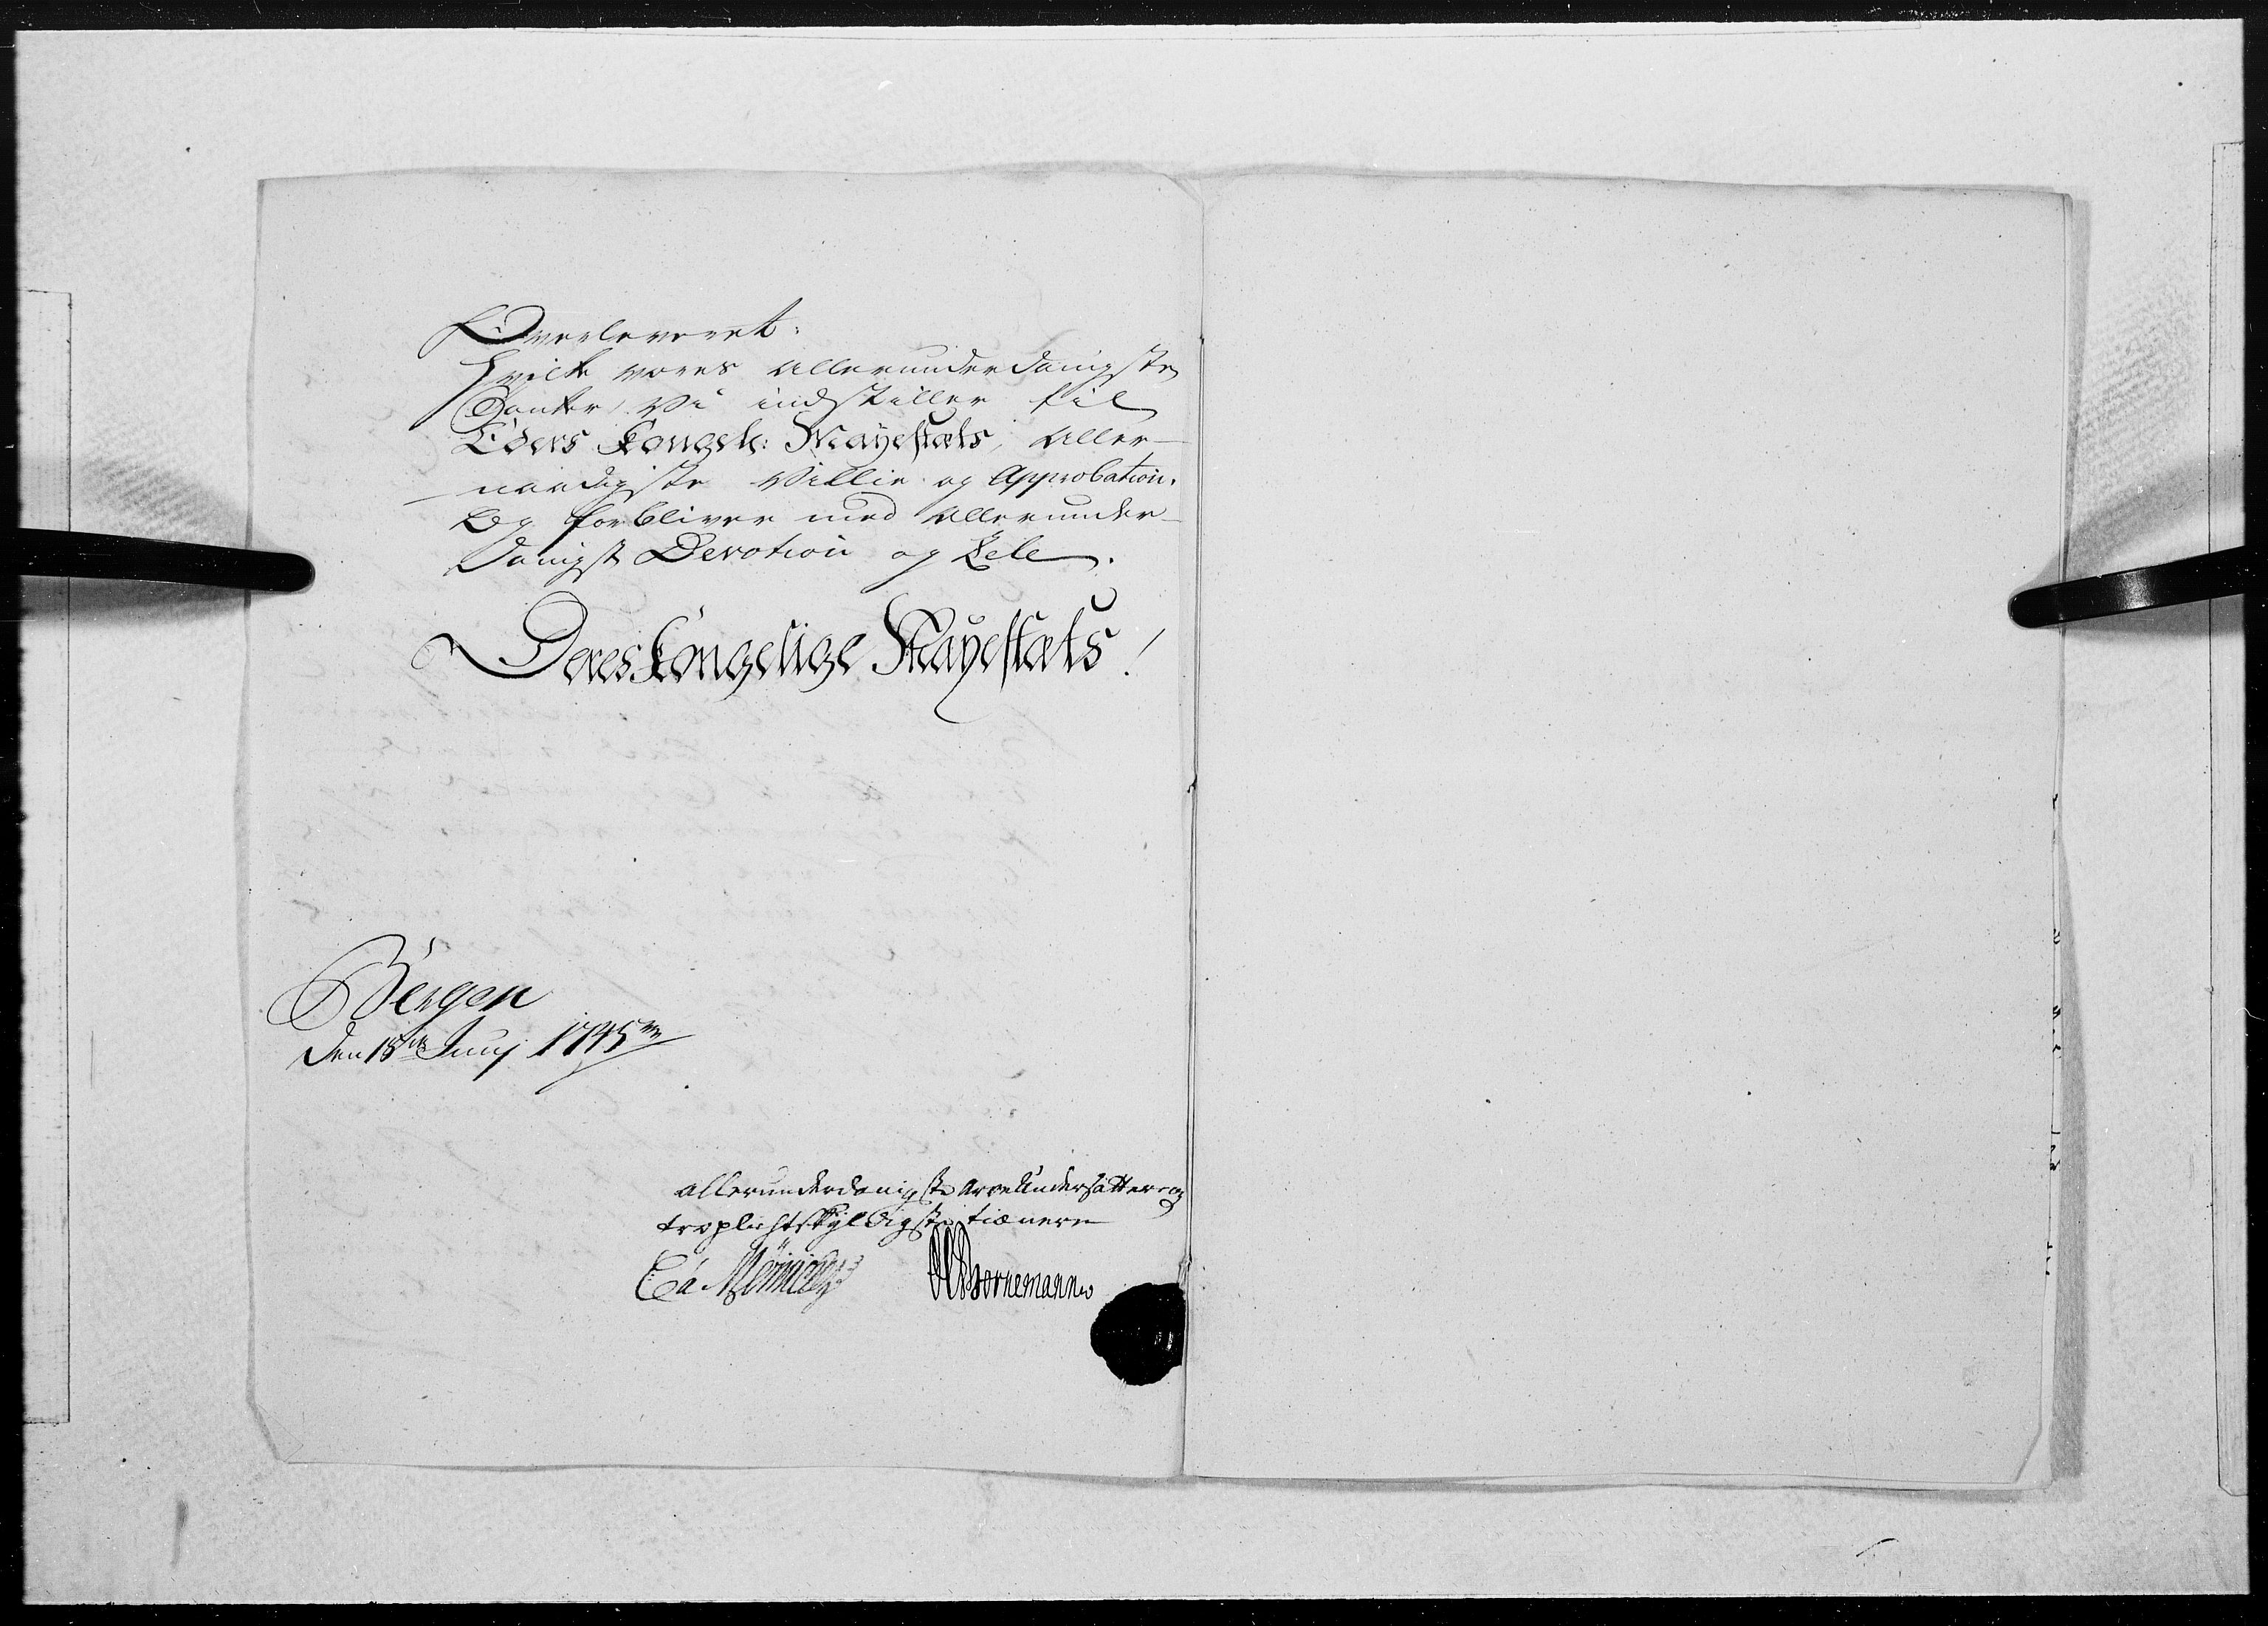 Overleveret.
Hvilke vores allerunderdanigste
Tanker, Vi indstiller til
Eders Kongel: Mayestæts, Aller-
naadigste Villie og Approbation.
Og forbliver med allerunder-
danigst Devotion og Zele.
Deres Kongelige Mayestæts!
Bergen
den 15de Junj 1745
allerunderdanigste arve Undersåtter og
tropligtskyldigste tienere
Bornemann